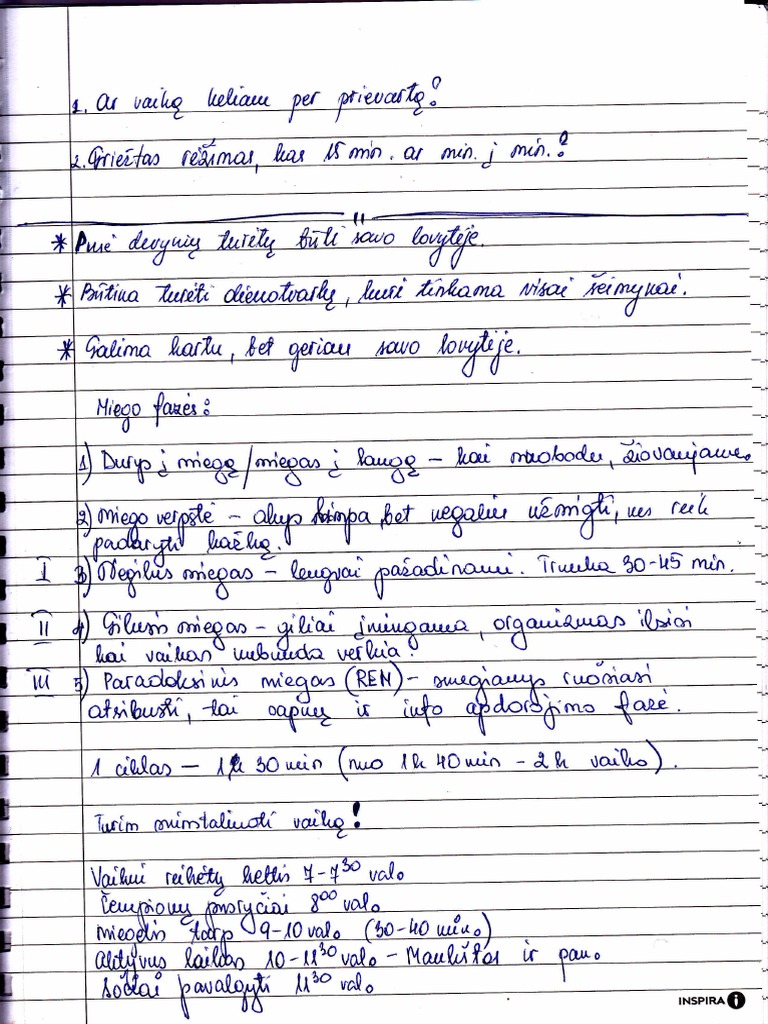 1. Ar vaiką keliam per prievartą?
2. Griežtas režimas, kas 15 min. ar min. į min.?
* Pusė devynių turėtų būti savo lovytėje.
* Būtina turėti dienotvarkę, kuri tinkama visai šeimynai.
* Galima kartu, bet geriau savo lovytėje.
Miego fazės:
1) Durys į miegą/miegas į langą – kai nuobodu, žiovaujame.
2) Miego verpstė – akys limpa, bet negaliu užmigti, nes reik
padaryti kažką.
I 3) Negilus miegas – lengvai pažadinami. Trunka 30-45 min.
II 4) Gilusis miegas – giliai įmingama, organizmas ilsisi
kai vaikas nubunda verkia!
III 5) Paradoksinis miegas (REM) – smegianys ruošiasi
atsibusti, tai sapnų ir info apdorojimo fazė.
1 ciklas – 1h 30 min (nuo 1h 40 min – 2h vaiko).
Turim nuinstaliuoti vaiką!
Vaikui reikėtų keltis 7-7³⁰ val.
Čempionų pusryčiai 8⁰⁰ val.
miegelis tarp 9-10 val. (30-40 min.)
aktyvus laikas 10-11³⁰ val. – Maukštas ir pan.
sočiai pavalgyti 11³⁰ val.
INSPIRA i